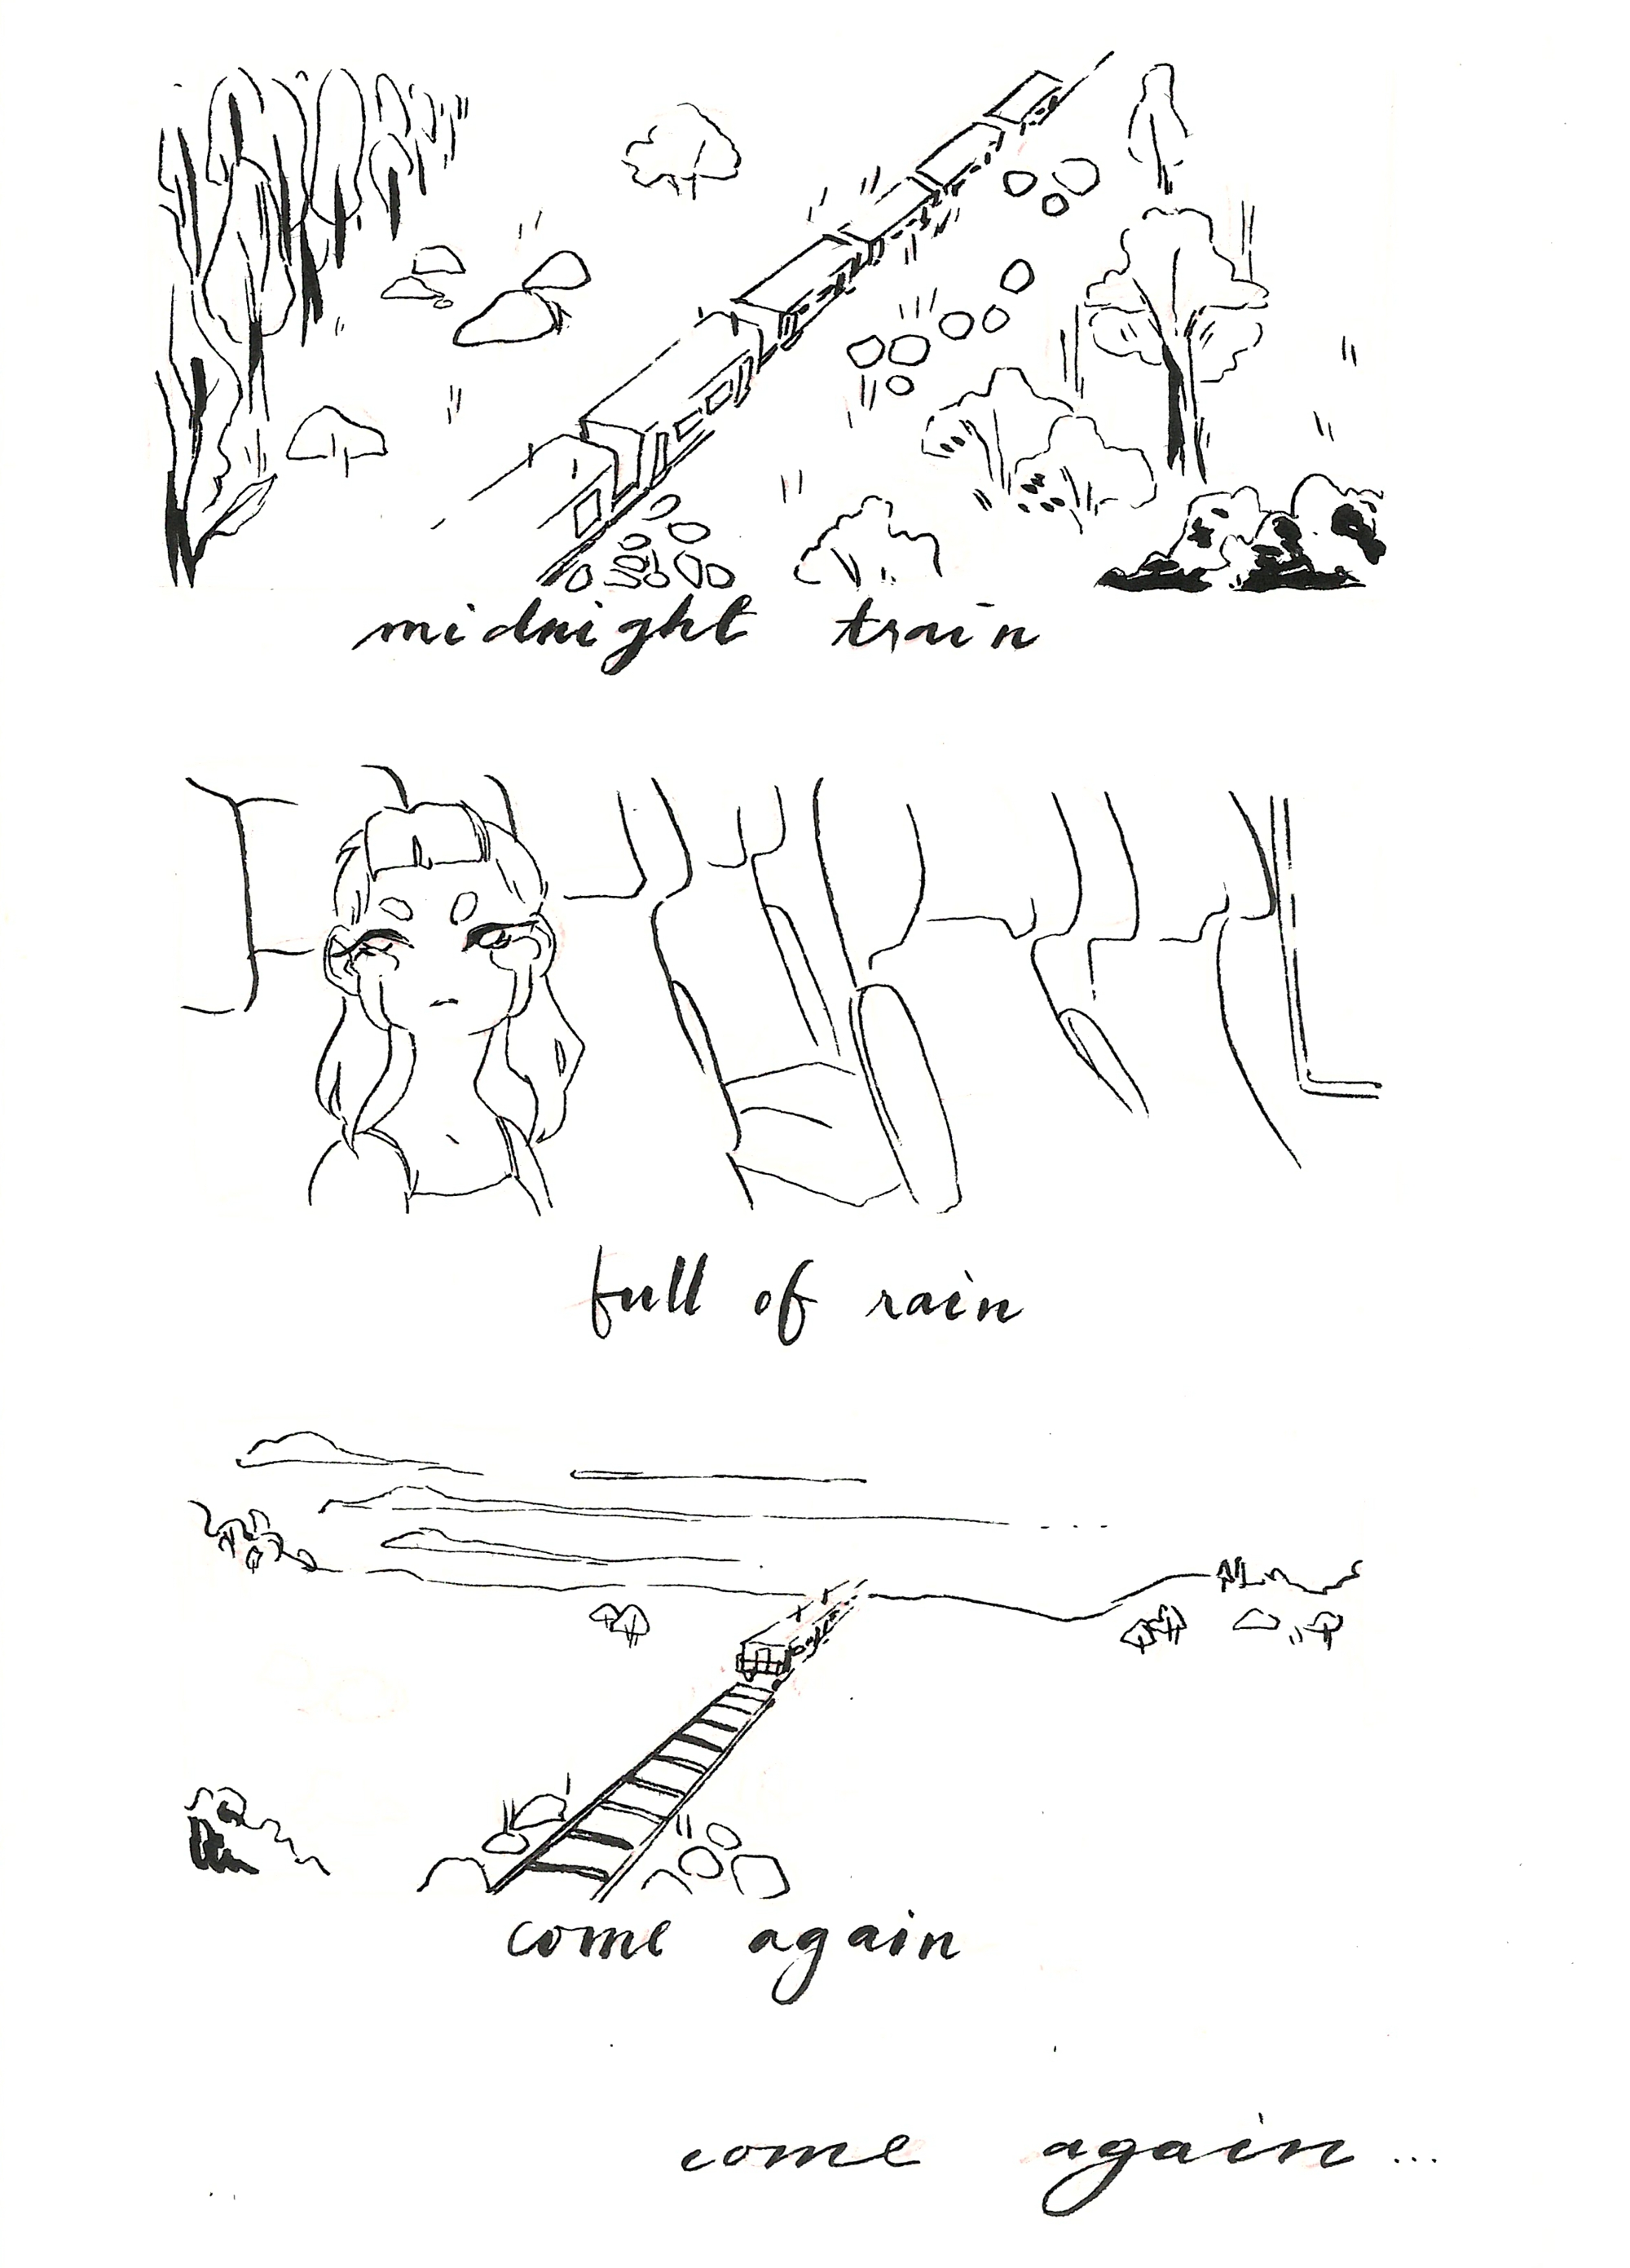 midnight train
full of rain
come again
come again...